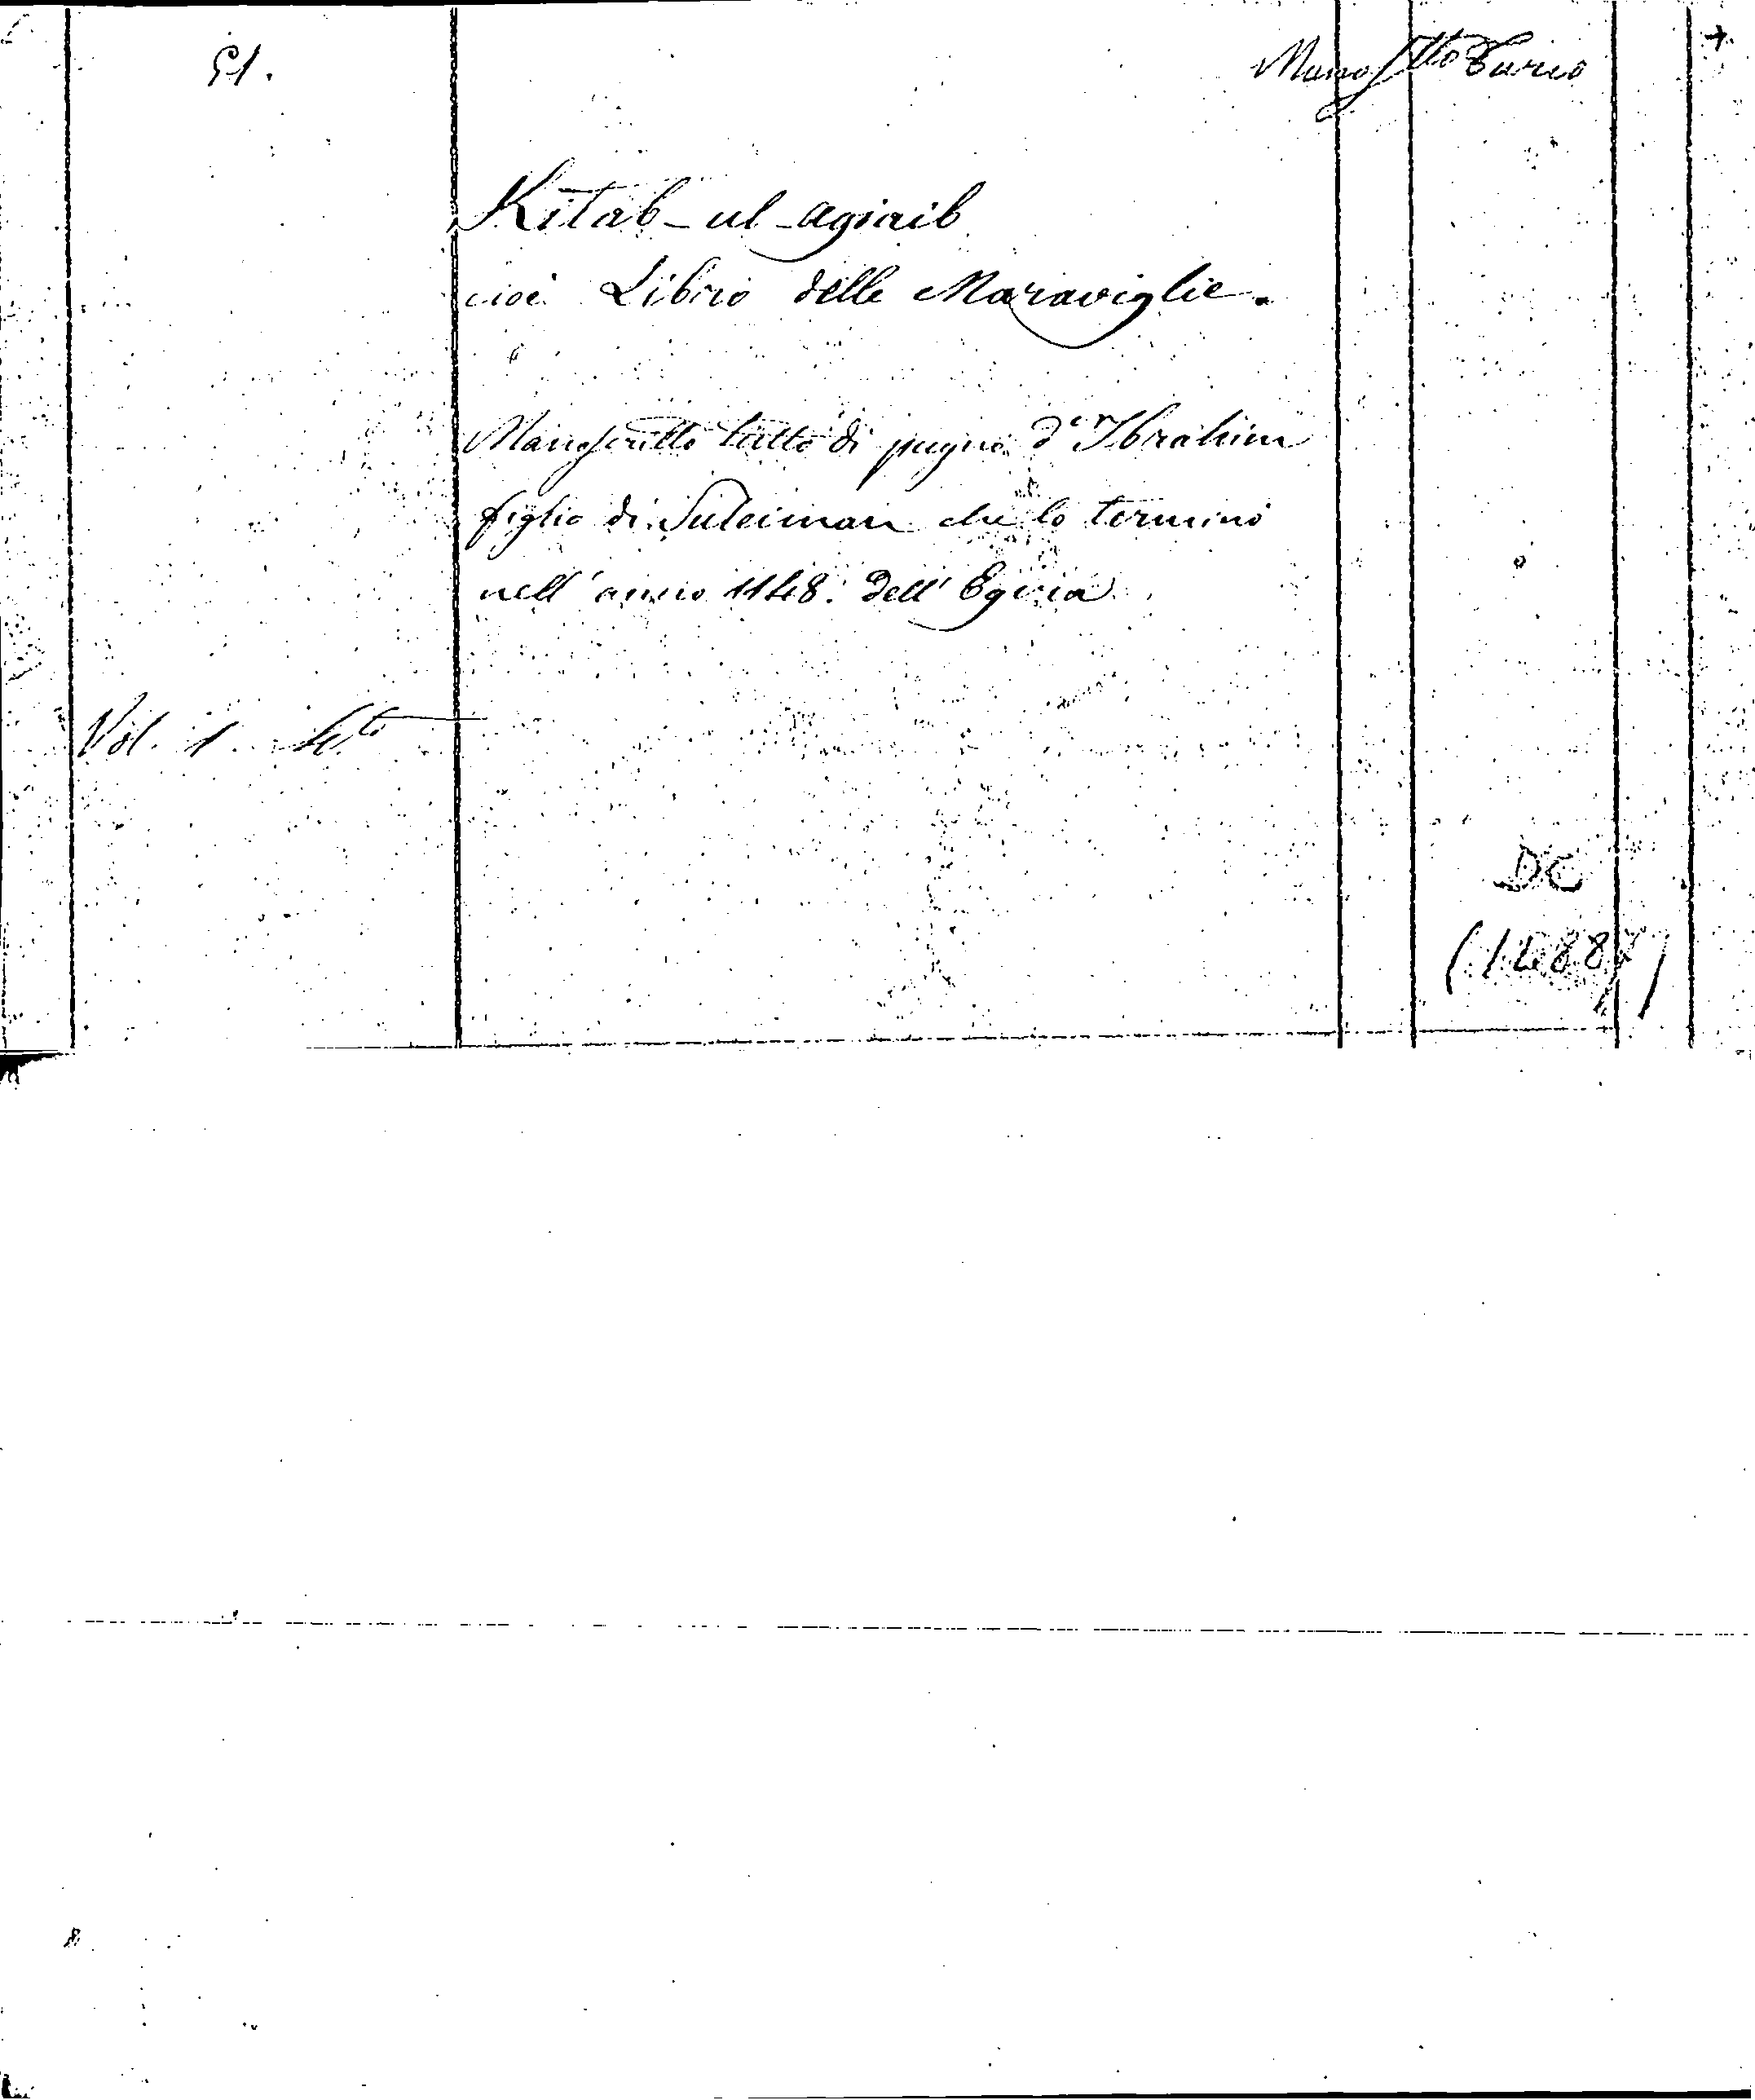 51. Manosctto Turco
Kitab-ul-agiaib
cioè Libro delle Maraviglie.
Manoscritto tutto di pugno d'Ibrahim
figlio di Suleiman che lo terminò
nell'anno 1148. dell'Egira
Vol. 1. 4.to
DC